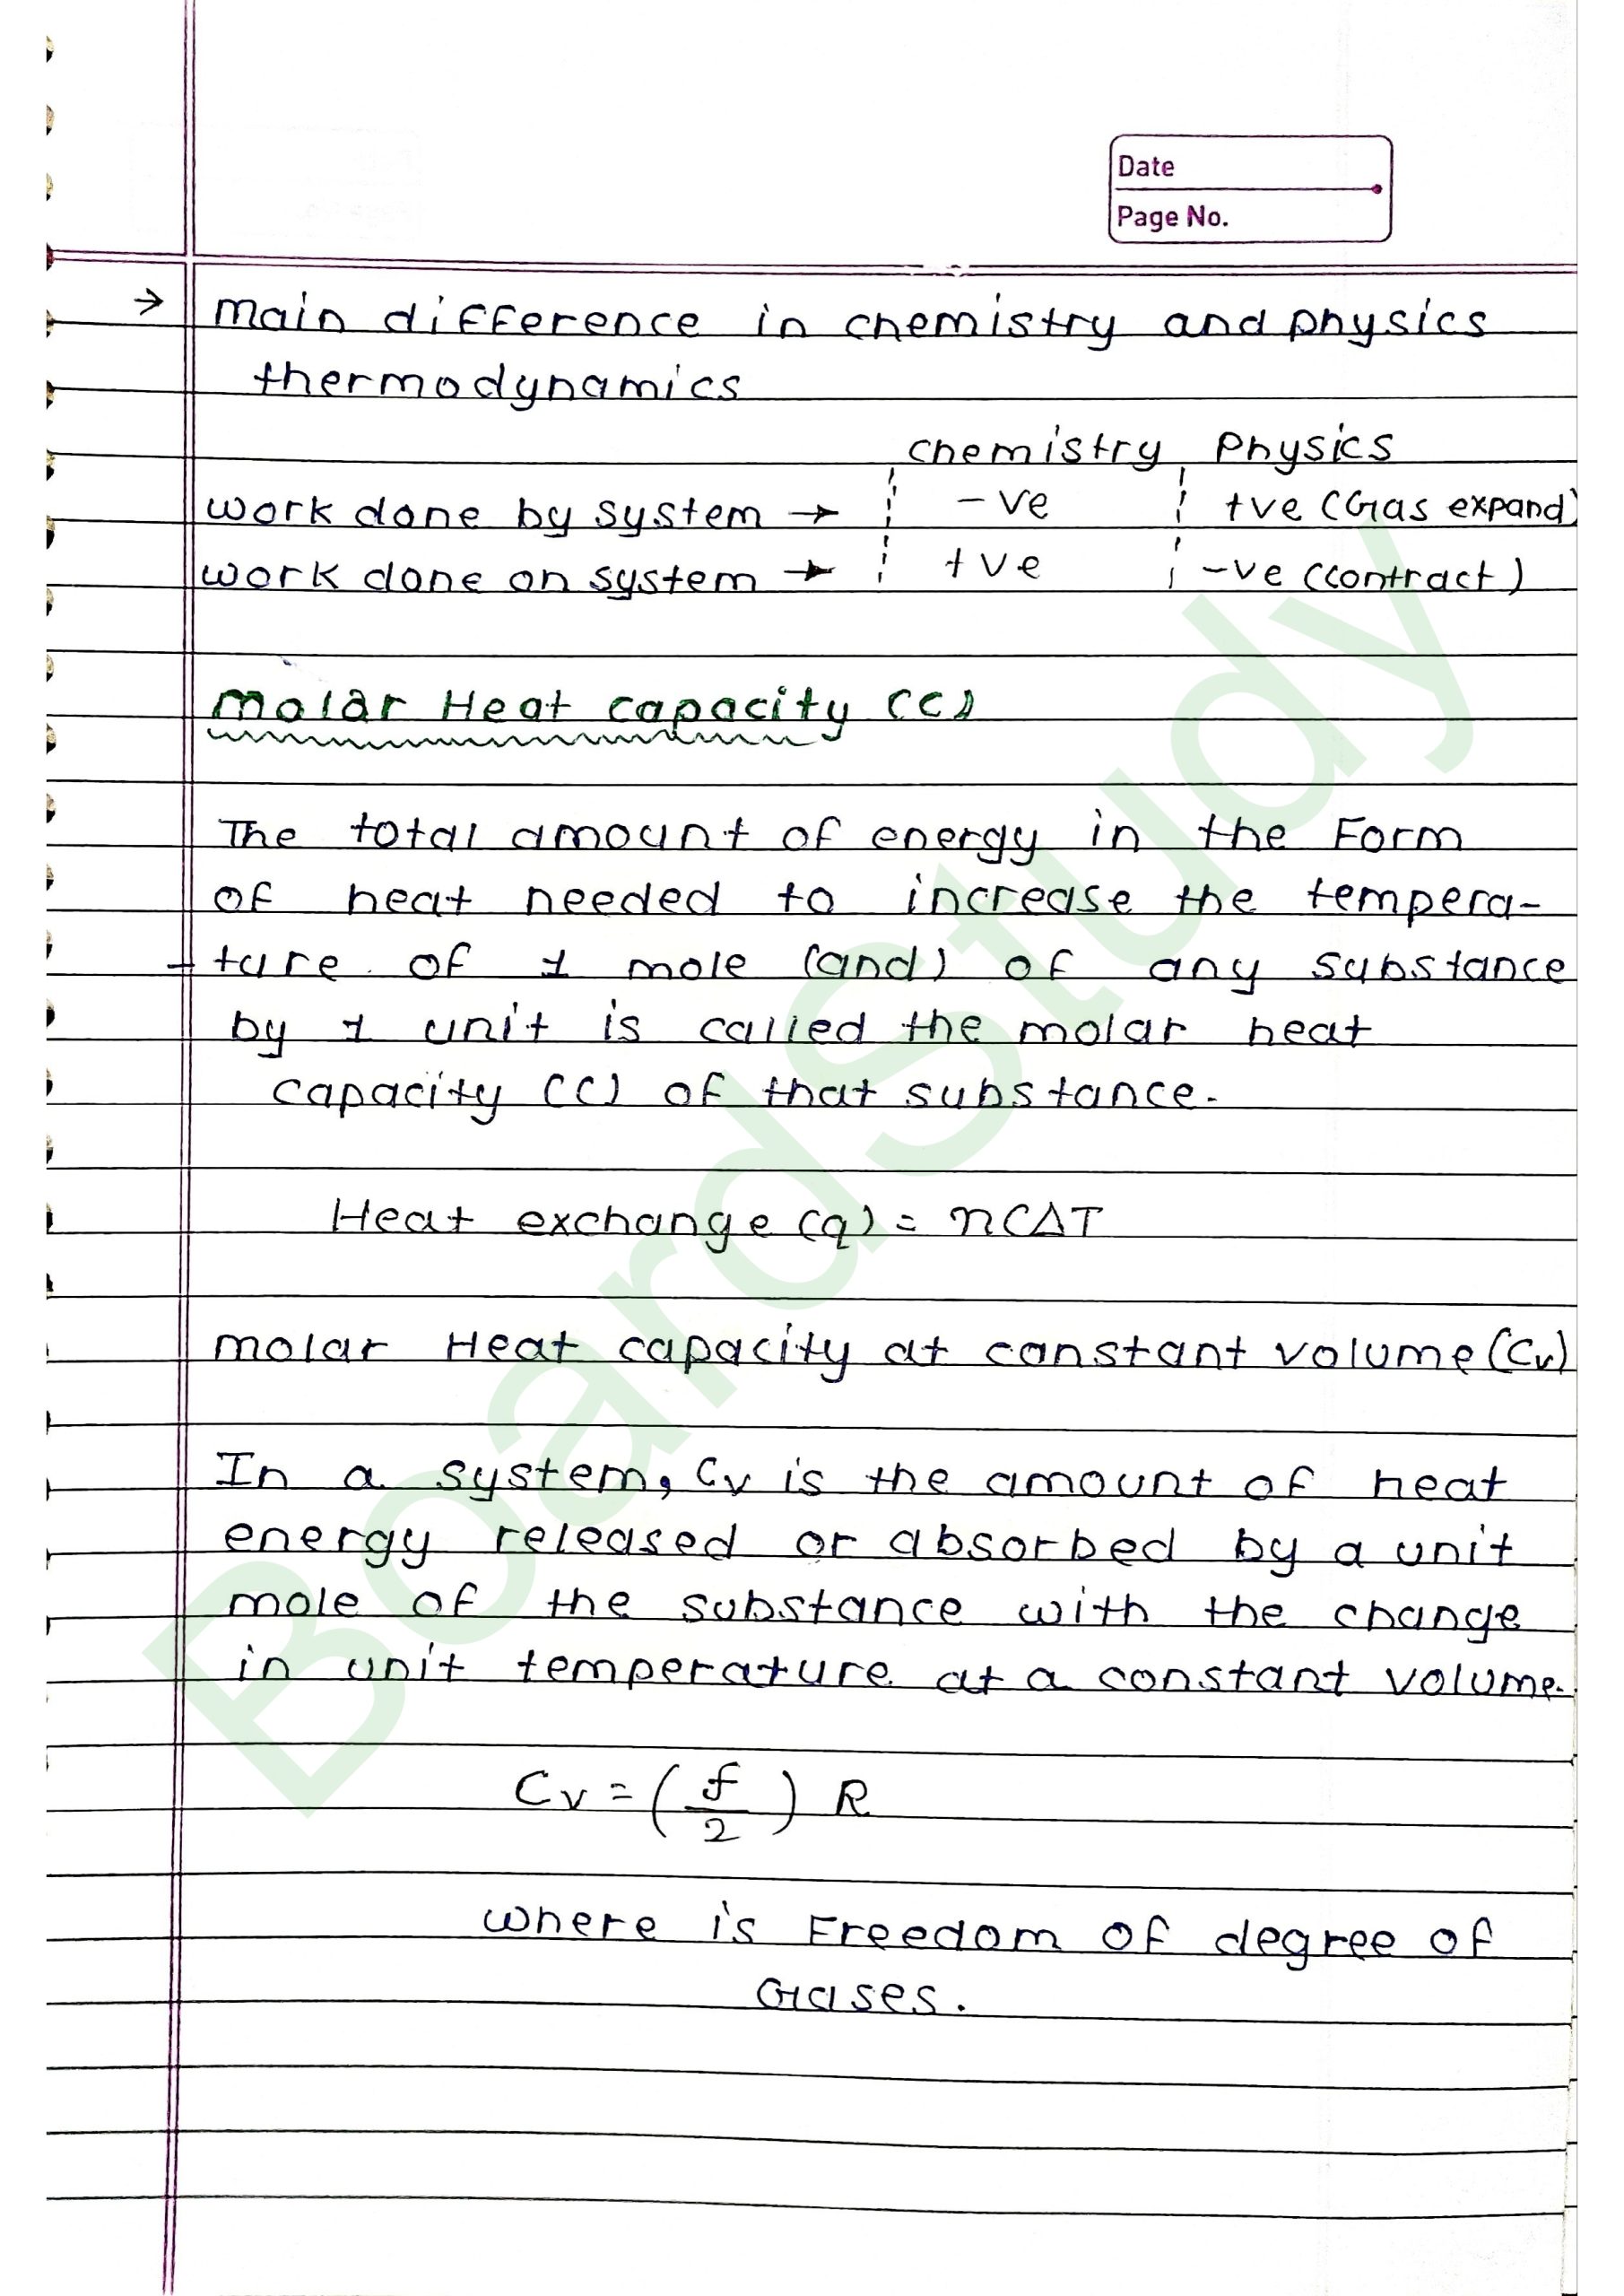 Date
Page No.
→ main difference in chemistry and physics
thermodynamics
chemistry Physics
work done by system → -ve +ve (Gas expand)
work done on system → +ve -ve (contract)
Molar Heat capacity (C)
The total amount of energy in the Form
of heat needed to increase the tempera-
ture of 1 mole (and) of any substance
by 1 unit is called the molar heat
capacity (C) of that substance.
Heat exchange (q) = nCΔT
molar Heat capacity at constant volume (Cv)
In a system, Cv is the amount of heat
energy released or absorbed by a unit
mole of the substance with the change
in unit temperature at a constant volume.
Cv = (f/2) R
where is Freedom of degree of
Gases.
BoardStudy